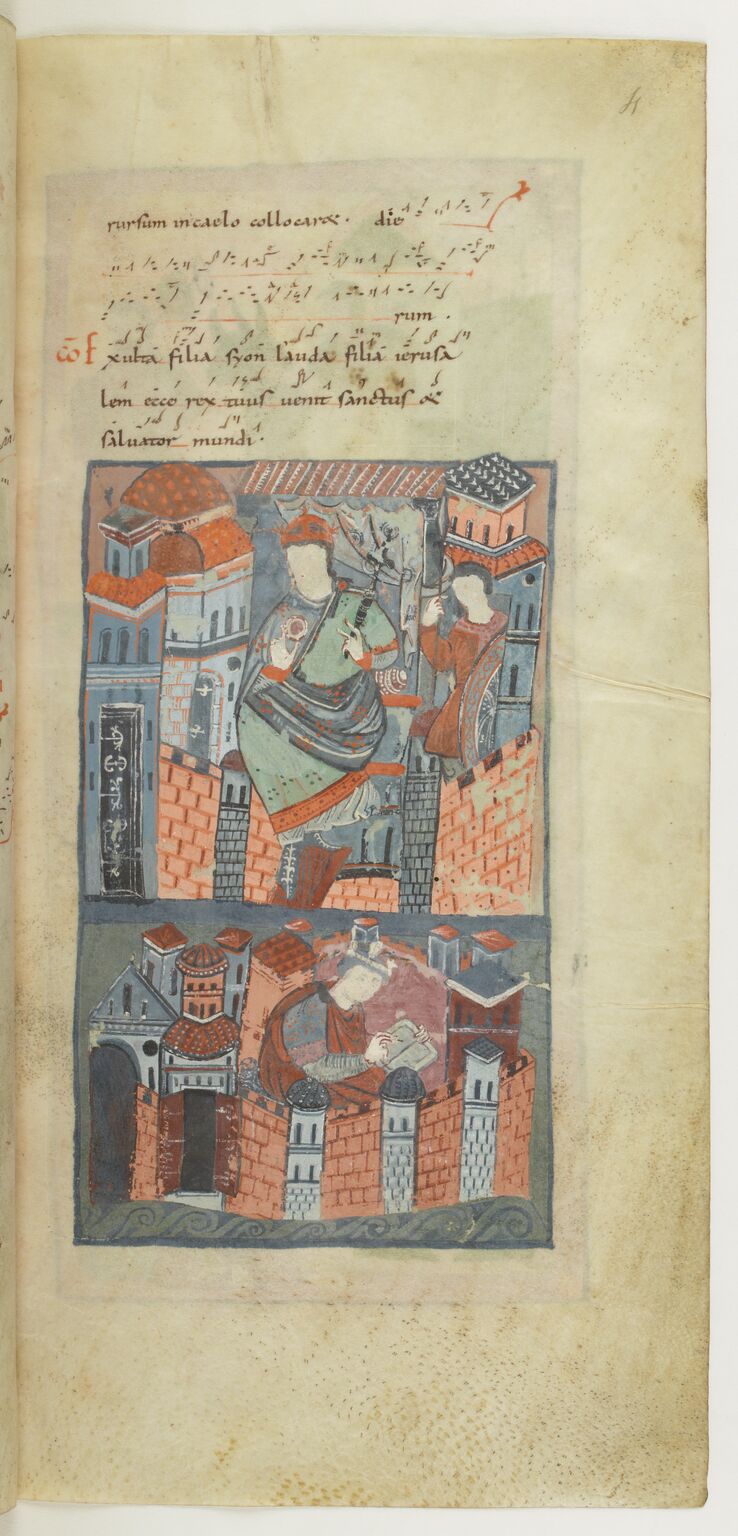 4
rursum in caelo collocaret. die
rum.
cōm Exulta filia syon lauda filia ierusa
lem ecce rex tuus uenit sanctus et
saluator mundi.